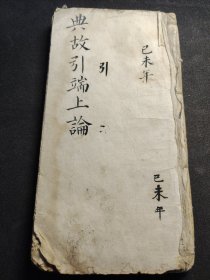 己未年
己未年
引二
典故引端上論